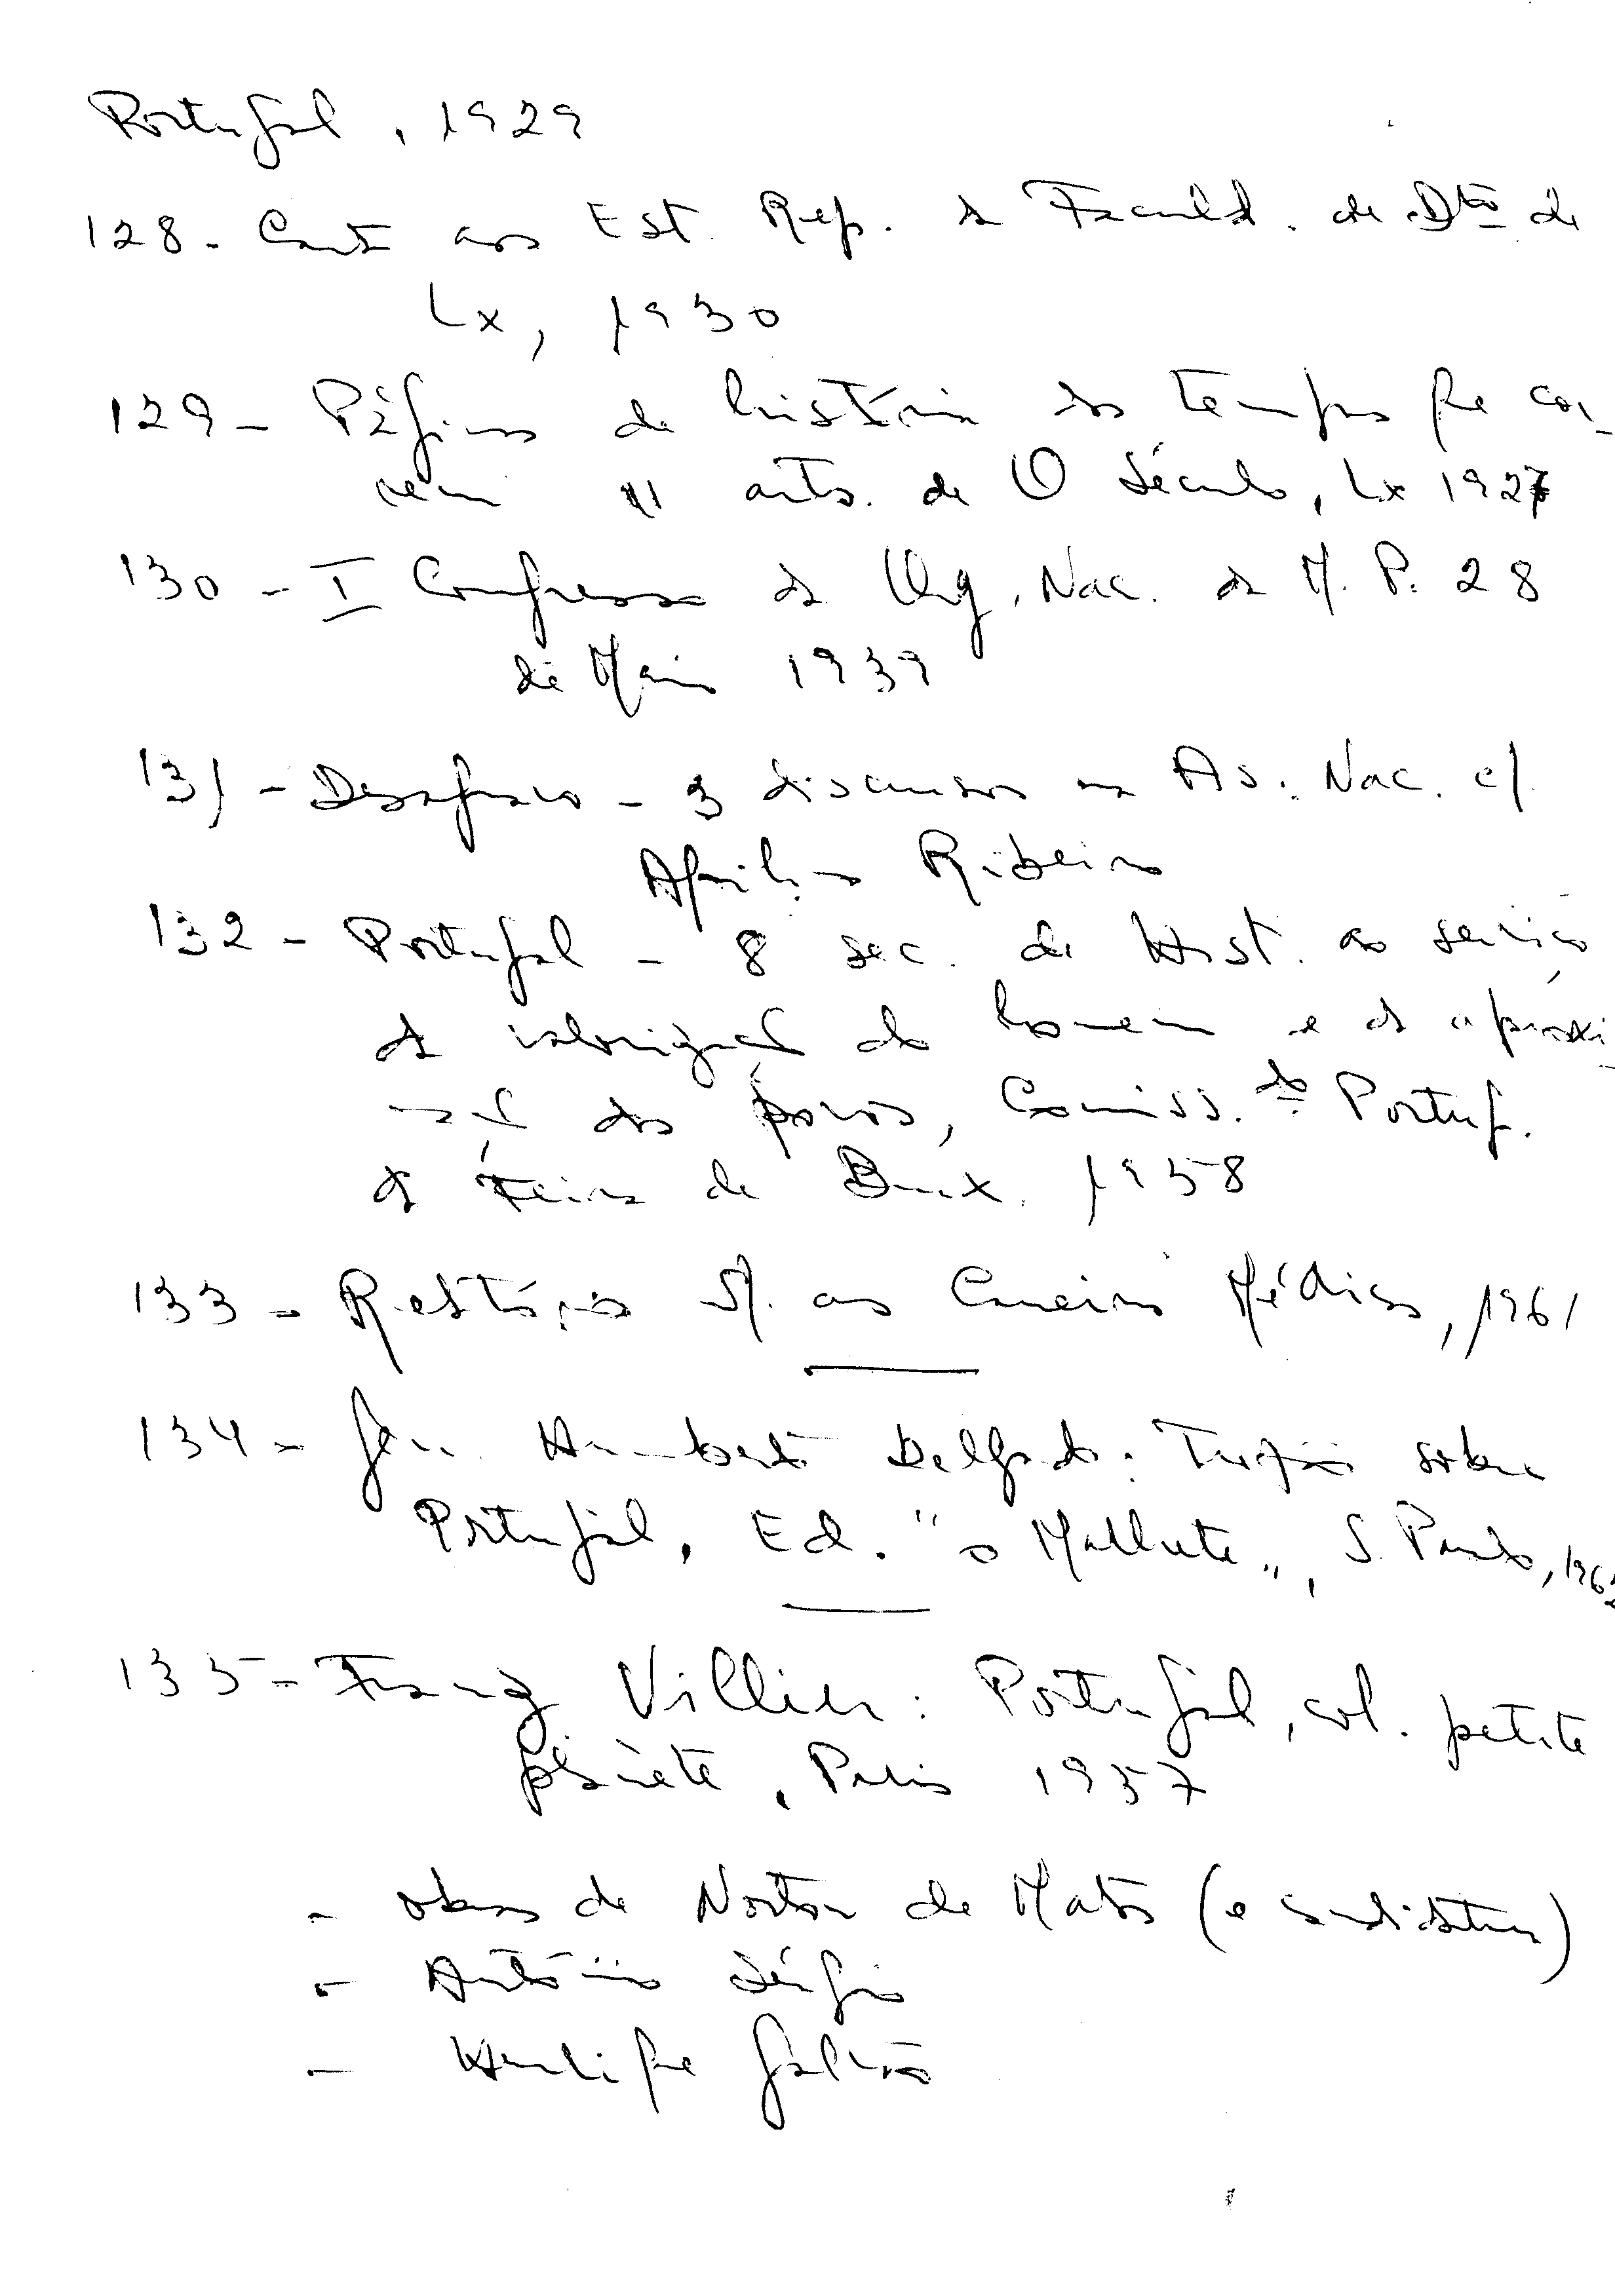 Portugal, 1929
128 - Carta aos Est. Rep. da Faculd. de Dto de
Lx, 1930
129 - Páginas de história dos tempos que cor-
rem 11 arts. de O Século, Lx 1927
130 - I Congresso da Org. Nac. da M. P. 28
de Maio 1939
131 - Desagravo - 3 discursos na As. Nac. c/
Aquilino Ribeiro
132 - Portugal - 8 sec. de Hist. ao serviço
da valorização do homem e da aproxi-
mação dos povos, Comiss.do Portug.
da Feira de Brux. 1958
133 - Relatório s/. as Carreiras Médicas, 1961
134 - Gen. Humberto Delgado: Tufão sobre
Portugal, Ed. "o Malhete", S. Paulo, 1962
135 - Franz Villier: Portugal, col. petite
planète, Paris 1957
- obras de Norton de Matos (e candidatura)
- António Sérgio
- Henrique Galvão